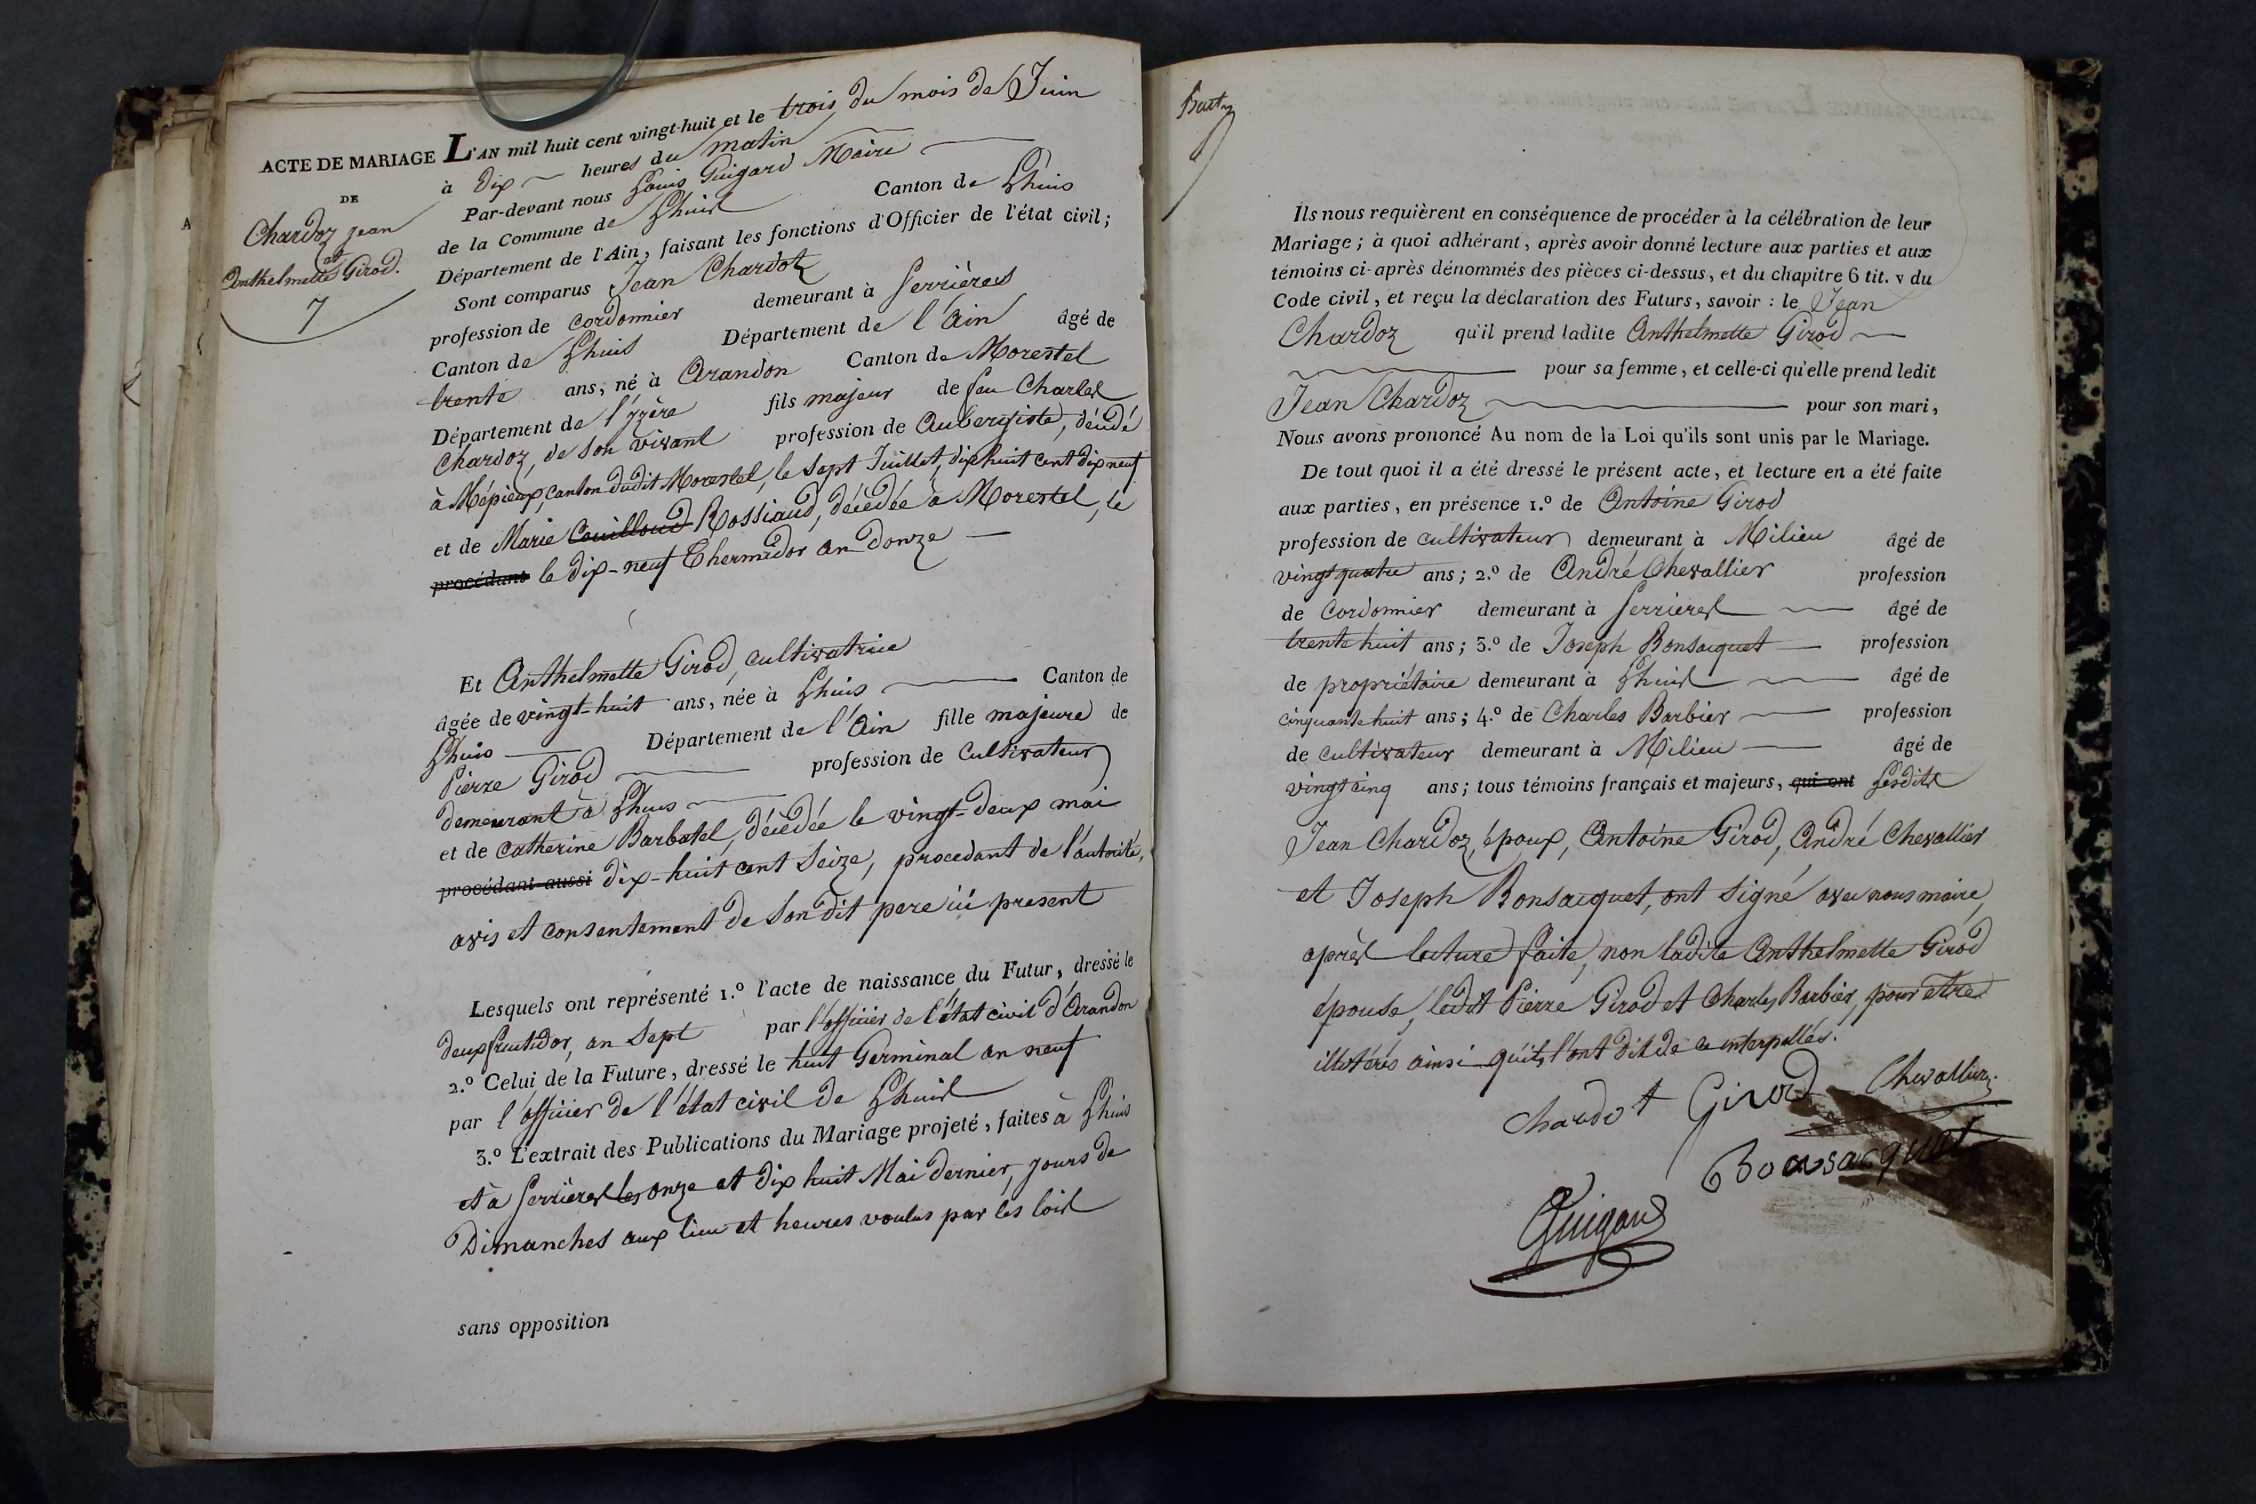 ACTE DE MARIAGE
DE
Chardoz Jean
et
Anthelmette Girod.
7
L'AN mil huit cent vingt-huit et le trois du mois de Juin
à dix heures du matin
Par-devant nous Louis Guigard Maire
de la Commune de Lhuis Canton de Lhuis
Département de l'Ain, faisant les fonctions d'Officier de l'état civil;
Sont comparus Jean Chardot
profession de Cordonnier demeurant à Serrières
Canton de Lhuis Département de l'Ain âgé de
trente ans, né à Arandon Canton de Morestel
Département de l'Yzère fils majeur de feu Charles
Chardoz, de son vivant profession de Aubergiste, décédé
à Mépieux, canton dudit Morestel, le sept Juillet, dix huit cent dix neuf
et de Marie Couilloud Rossiaud, décédée à Morestel, le
procédant le dix-neuf Thermidor an donze
Et Anthelmette Girod, cultivatrice
âgée de vingt-huit ans, née à Lhuis Canton de
Lhuis Département de l'Ain fille majeure de
Pierre Girod profession de Cultivateur
demeurant à Lhuis
et de Catherine Barbatel, décédée le vingt-deux mai
procédant aussi dix-huit cent seize, procedant de l'autorité,
avis et consentement de son dit pere ici present
Lesquels ont représenté 1.º l'acte de naissance du Futur, dressé le
deux fructidor, an sept par l'officier de l'état civil d'Arandon
2.º Celui de la Future, dressé le huit Germinal an neuf
par l'officier de l'état civil de Lhuis
3.º L'extrait des Publications du Mariage projeté, faites à Lhuis
et à Serrières les onze et dix huit Mai dernier, jours de
Dimanches aux lieu et heures voulus par les lois
sans opposition
Ils nous requièrent en conséquence de procéder à la célébration de leur
Mariage; à quoi adhérant, après avoir donné lecture aux parties et aux
témoins ci-après dénommés des pièces ci-dessus, et du chapitre 6 tit. v du
Code civil, et reçu la déclaration des Futurs, savoir : le Jean
Chardoz qu'il prend ladite Anthelmette Girod
pour sa femme, et celle-ci qu'elle prend ledit
Jean Chardoz pour son mari,
Nous avons prononcé Au nom de la Loi qu'ils sont unis par le Mariage.
De tout quoi il a été dressé le présent acte, et lecture en a été faite
aux parties, en présence 1.º de Antoine Girod
profession de cultivateur demeurant à Milieu âgé de
vingt quatre ans; 2.º de André Chevallier profession
de Cordonnier demeurant à Serrières âgé de
trente huit ans; 3.º de Joseph Bonsacquet profession
de propriétaire demeurant à Lhuis âgé de
cinquante huit ans; 4.º de Charles Barbier profession
de cultivateur demeurant à Milieu âgé de
vingt cinq ans; tous témoins français et majeurs, qui ont Lesdits
Jean Chardoz, époux, Antoine Girod, André Chevallier
et Joseph Bonsacquet, ont signé avec nous maire,
après lecture faite, non ladite Anthelmette Girod
épouse, ledit Pierre Girod et Charles Barbier, pour etre
illetérés ainsi qu'ils l'ont dit de ce interpellés.
Chardot Girod Chevallier
Bonsacquet
Guigard